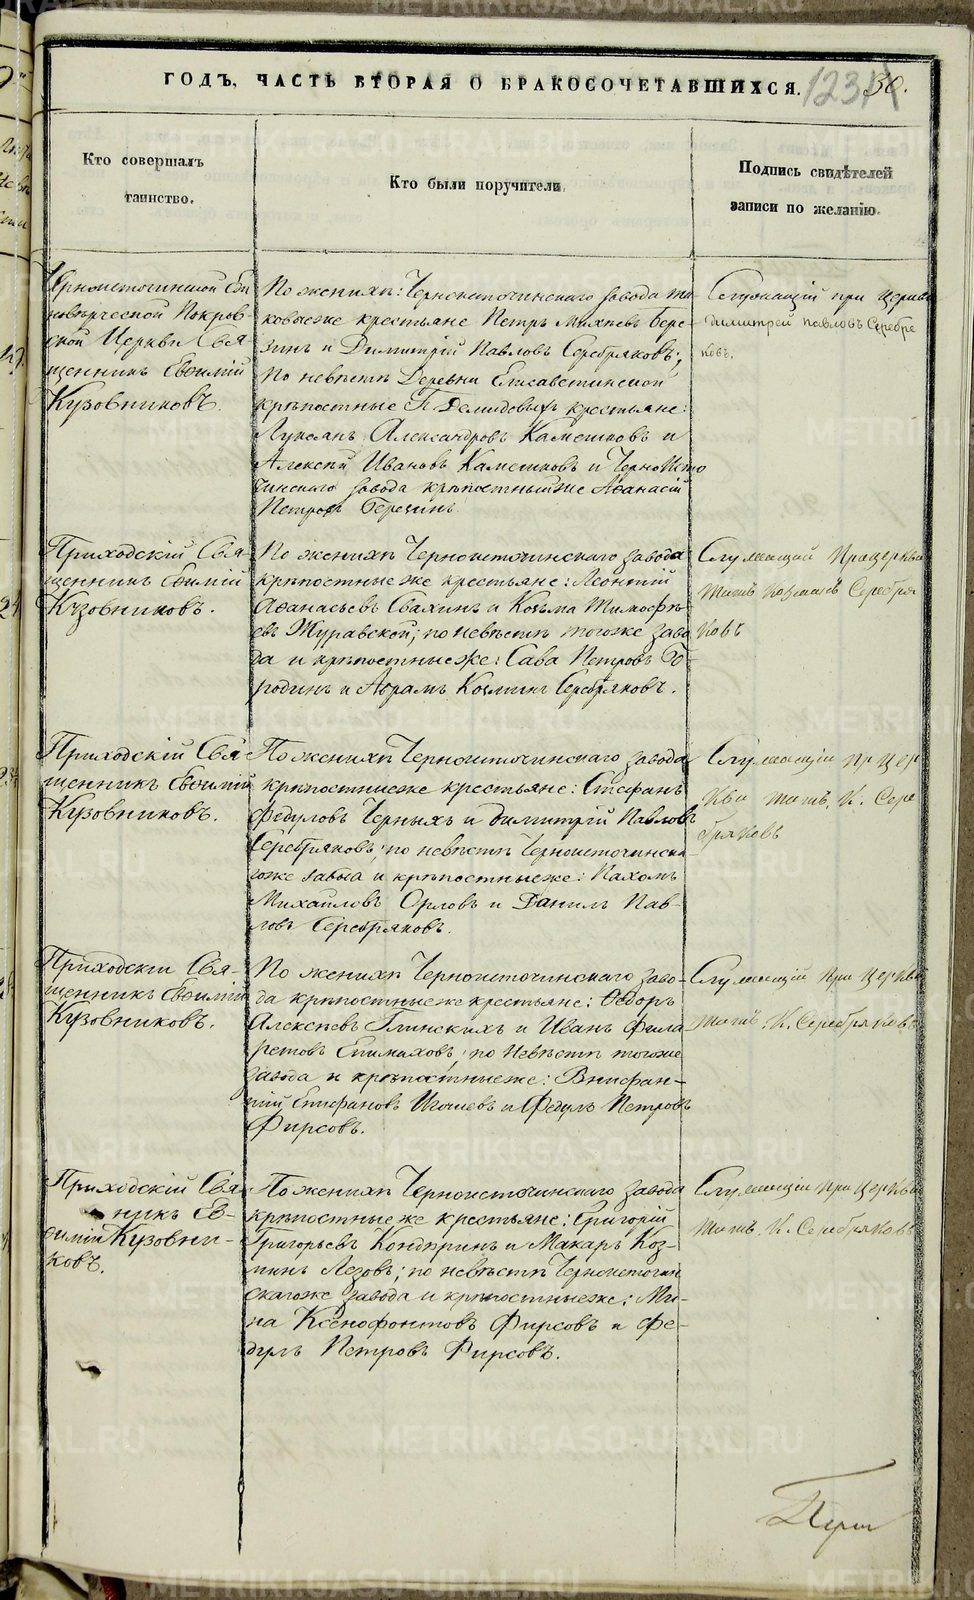 ГОДЪ, ЧАСТЬ ВТОРАЯ О БРАКОСОЧЕТАВШИХСЯ.
123
30.
Кто совершалъ
таинство.
Кто были поручители.
Подпись свидѣтелей
записи по желанію.
Черноисточинской Еди
новѣрческой Покров-
ской Церкви Свя
щенникъ Евѳимій
Кузовниковъ.
По женихѣ: Черноисточинскаго завода та
ковыеже крестьяне Петръ Бере
зинъ и Димитрій Павловъ Серебряковъ;
по невѣстѣ Деревни Елисаветинской
крѣпостные Г. Демидовыхъ крестьяне:
Лукоянъ Александровъ Камешковъ и
Алексѣй Ивановъ Камешковъ и Черноисто
чинскаго завода крѣпостныйже Аѳанасій
Петровъ Березинъ
Служащій при церкви
димитрей павловъ Серебре
ковъ.
Приходскій Свя
щенникъ Евѳимій
Кузовниковъ.
По женихѣ Черноисточинскаго завода
крѣпостныеже крестьяне: Леонтій
Аѳанасьевъ и Козьма Тимофѣ
евъ Журавской; по невѣстѣ тогоже заво
да и крѣпостныеже: Сава Петровъ Бо
родинъ и Абрамъ Козминъ Серебряковъ.
Служащій При церква
Титъ Козминъ Серебря
ковъ
Приходскій Свя
щенникъ Евѳимій
Кузовниковъ.
По женихѣ Черноисточинскаго завода
крѣпостныеже крестьяне: Стефанъ
Федуловъ Черныхъ и Димитрій Павловъ
Серебряковъ; по невѣстѣ Черноисточинска
гоже завода и крѣпостныеже: Пахомъ
Михайловъ Орловъ и Данилъ Пав-
ловъ Серебряковъ.
Служащій при цер
кви Титъ. К. Сере
бряковъ
Приходскій Свя-
щенникъ Евѳимій
Кузовниковъ.
По женихѣ Черноисточинскаго заво-
да крѣпостныеже крестьяне: Ѳедоръ
Алексѣевъ Глинскихъ и Иванъ Фила
ретовъ Епимаховъ; по невѣстѣ тогоже
завода и крѣпостныеже:
Епифановъ и Федулъ Петровъ
Фирсовъ.
Служащій при церкви
Титъ. К. Серебряковъ
Приходскій Свя
никъ Ев-
ѳимій Кузовни-
ковъ.
По женихѣ Черноисточинскаго завода
крѣпостныеже крестьяне: Григорій
Григорьевъ Кондюринъ и Макаръ Коз-
минъ Лезовъ; по невѣстѣ Черноисточин
скагоже завода и крѣпостныеже: Ми-
на Ксенофонтовъ Фирсовъ и Фе-
дулъ Петровъ Фирсовъ.
Служащій при Церкви
Титъ. К. Серебряковъ
METRIKI.GASO-URAL.RU